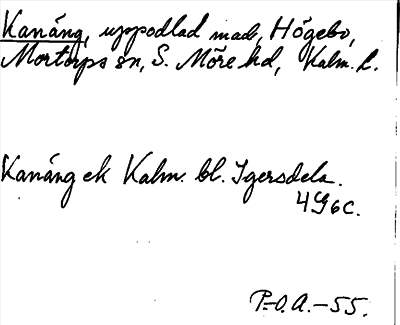 Kanäng, uppodlad mad, Högebo,
Mortorps sn, S. Möre hd, Kalm. l.
Kanäng ek Kalm. bl. Igersdela.
4G6c.
P.-O.A.-55.